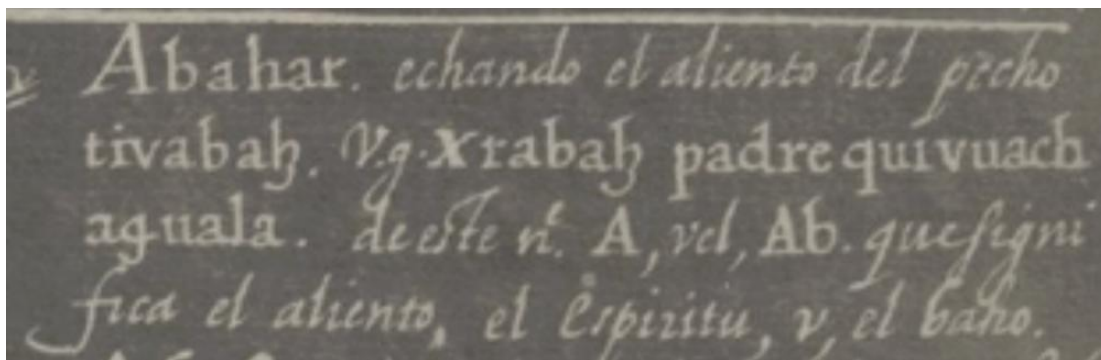 Abahar. echando el aliento del pecho
tivabaꜧ. V.g. Xrabaꜧ padre quivuach
aguala. de este nẽ. A, vel, Ab. que signi
fica el aliento, el Espiritu, v, el baho.